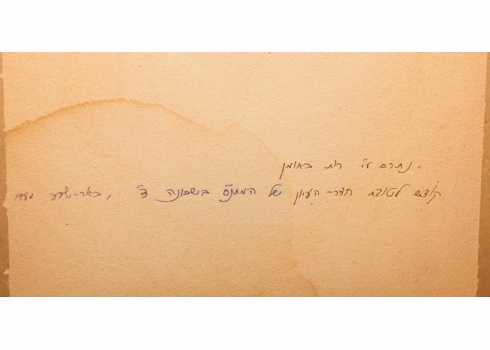 נתרם ע"י רות באומן.
לטובת חדר-העיון של המתנ"ס בשכונה ד', באר-שבע